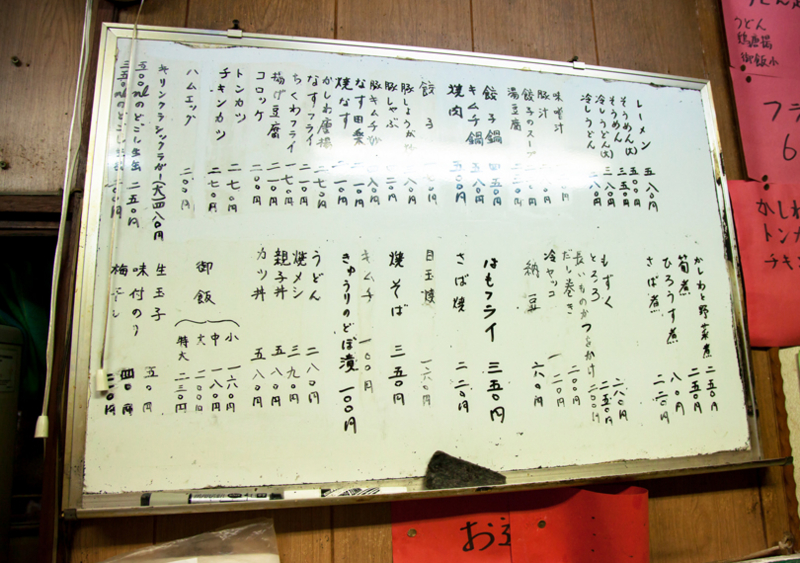 ラーメン 五八〇円
そうめん(大) 五〇〇円
そうめん 三五〇円
冷しうどん(大) 三八〇円
冷しうどん 二八〇円
味噌汁
豚汁
餃子のスープ
湯豆腐
餃子鍋 四五〇円
キムチ鍋 五八〇円
焼肉 五〇〇円
餃子
豚しょうが
豚しゃぶ
豚キムチ炒
なす田楽
焼なす
かしわ唐揚 二七〇円
なすフライ
ちくわフライ 一七〇円
揚げ豆腐
コロッケ 二〇〇円
トンカツ 二七〇円
チキンカツ 二七〇円
ハムエッグ 二〇〇円
キリンクラシックラガー(大)四八〇円
五〇〇mlのどごし生缶 二五〇円
三五〇mlのどごし生缶
かしわと野菜煮 二五〇円
筍煮 二五〇円
ひろうす煮 八〇円
さば煮 二二〇円
もずく
とろろ 二五〇円
長いものかつおかけ 二〇〇円
だし巻き 二〇〇円
冷ヤッコ 一二〇円
納豆 六〇円
はもフライ 三五〇円
さば焼 二二〇円
目玉焼 一六〇円
焼そば 三五〇円
キムチ 一〇〇円
きゅうりのどぼ漬 一〇〇円
うどん 二八〇円
焼メシ 三九〇円
親子丼 五八〇円
カツ丼 五八〇円
御飯
小 一六〇円
中 一八〇円
大 二〇〇円
特大 二三〇円
生玉子 五〇円
味付のり 四〇円
梅干し
うどん
御飯小
フラ
6
かしわ
トンカ
チキ
お